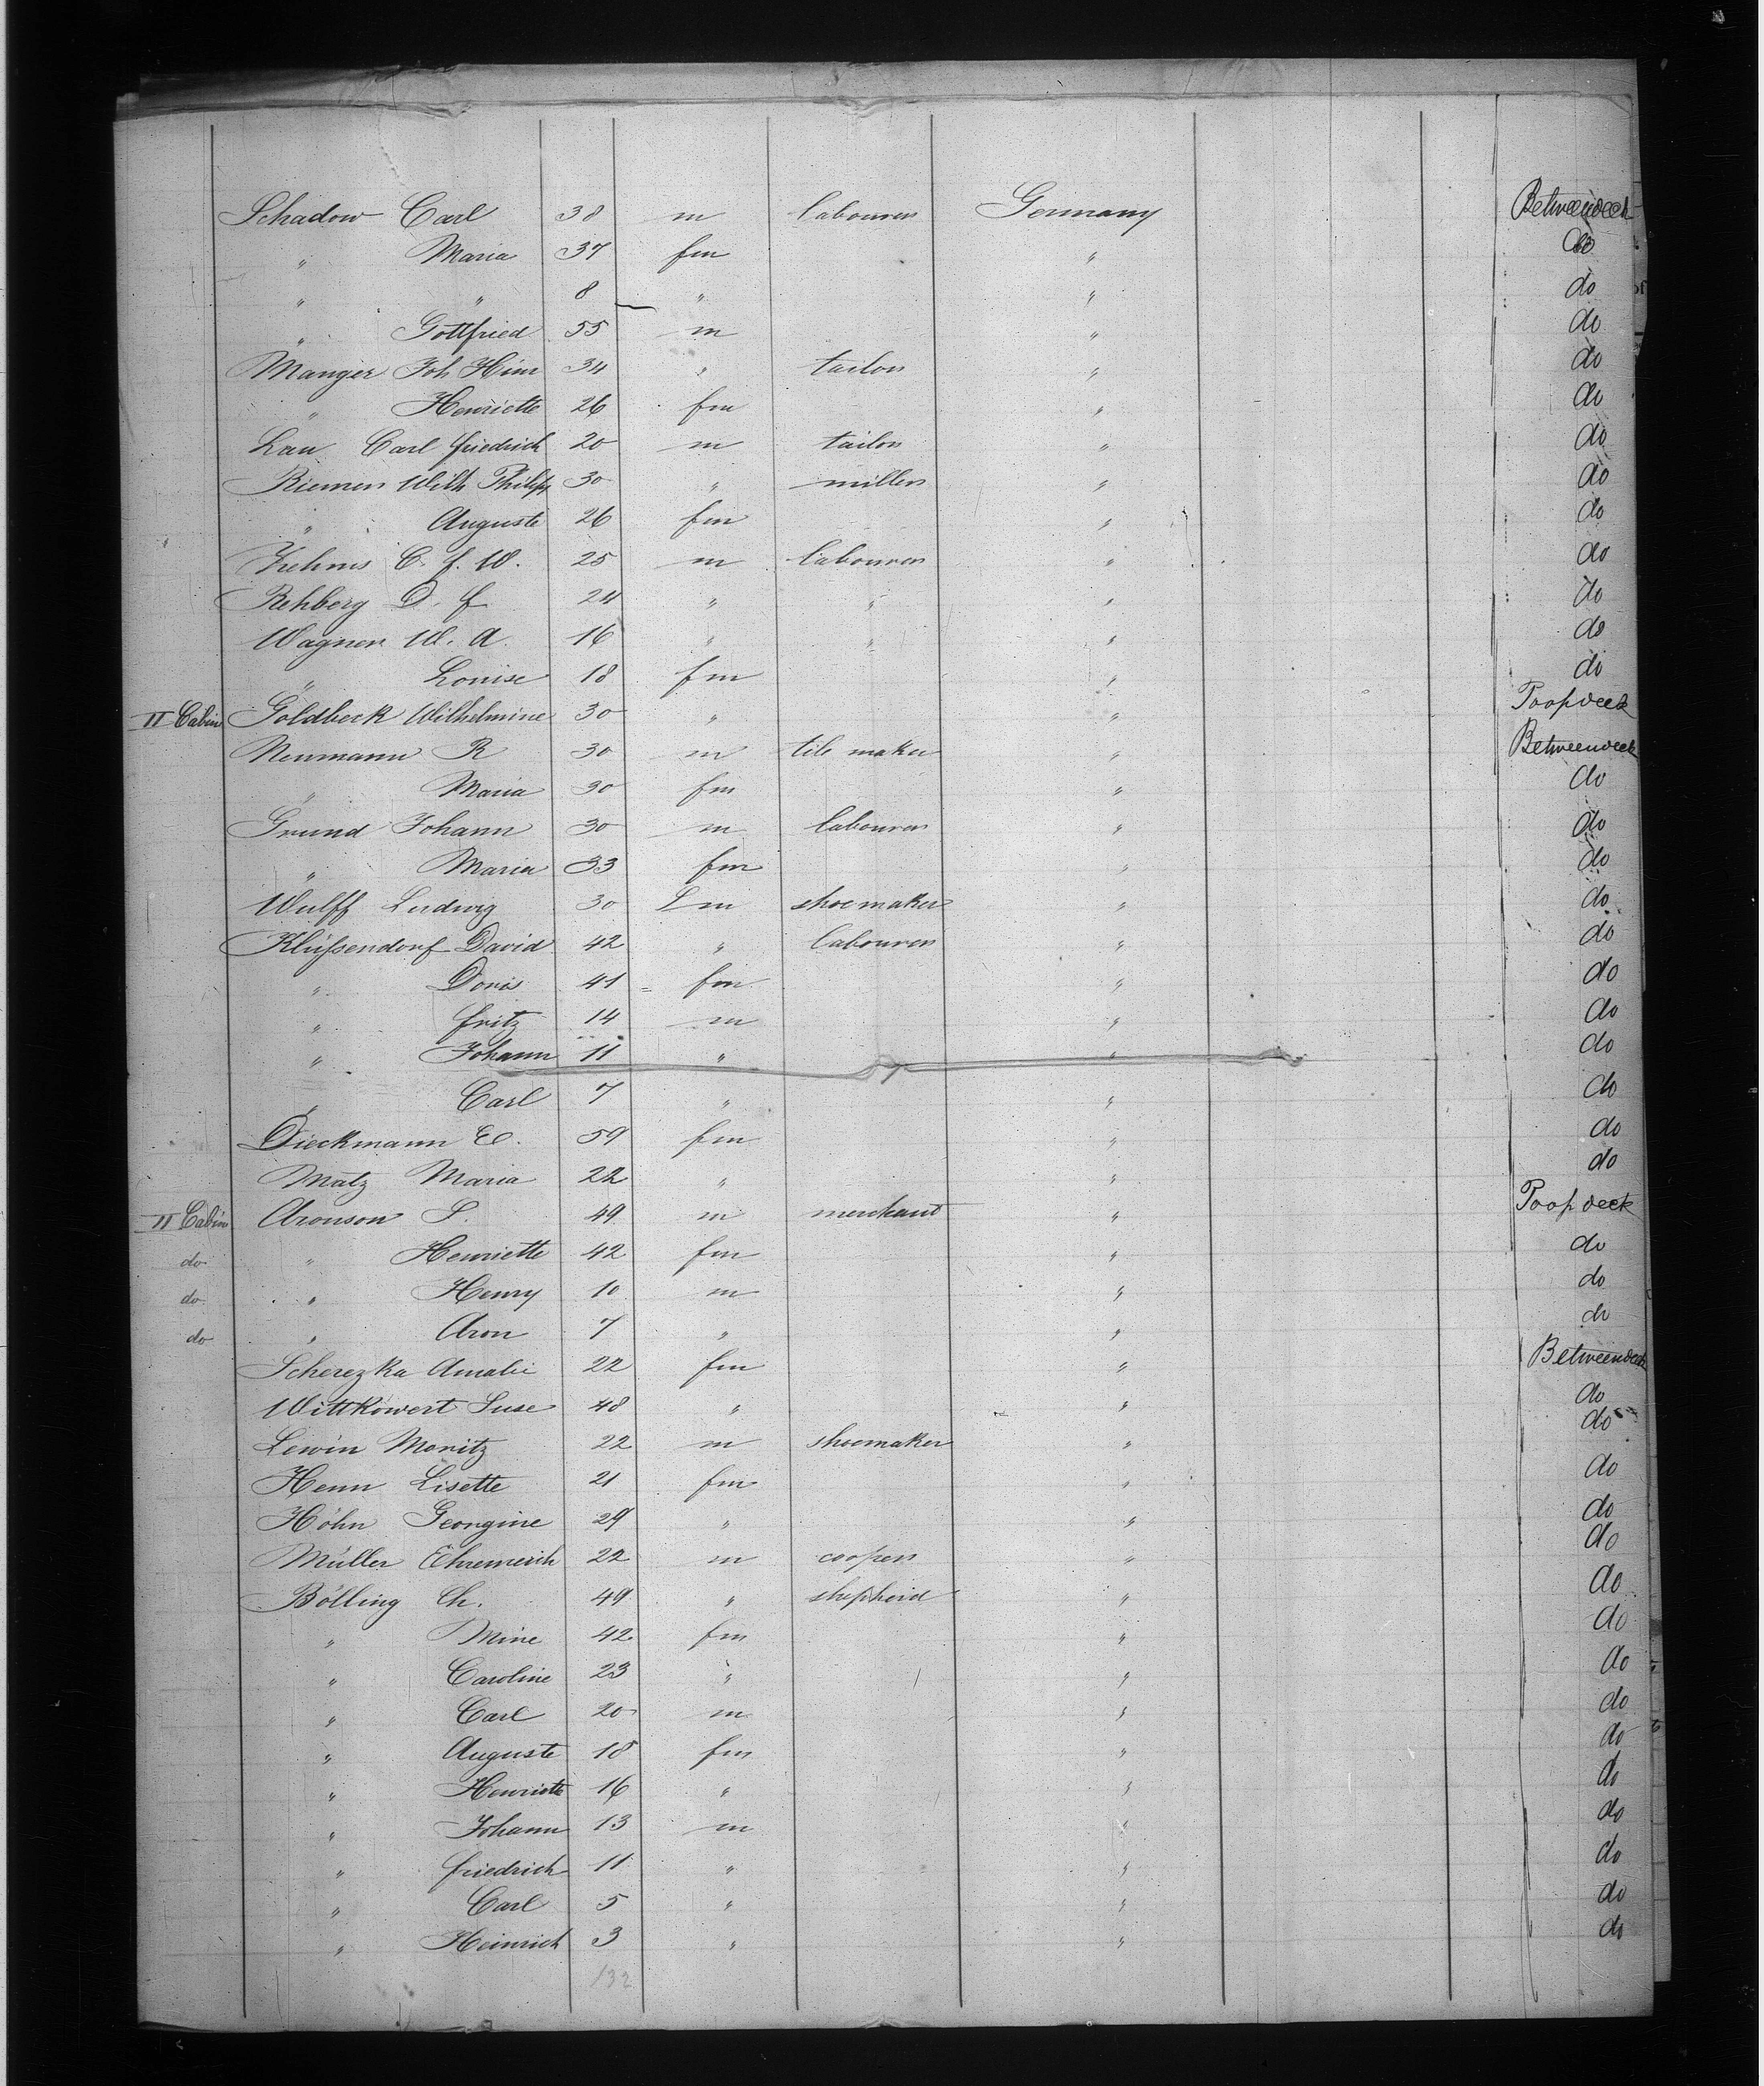 Schadow Carl 38 m labourer Germany Betweendeck
" Maria 37 fm " do
" " 8 " " do
" Gottfried 55 m " do
Manger Joh Hinr 34 " tailor " do
" Henriette 26 fm " do
Lau Carl Friedrich 20 m tailor " do
Riemer Wilh Philipp 30 " miller " do
" Auguste 26 fm " do
C. F. W. 25 m labourer " do
Rehberg D. F. 24 " " " do
Wagner W. A. 16 " " " do
" Louise 18 fm " do
II Cabin Goldbeck Wilhelmine 30 " " Poopdeck
Neumann R 30 m tile maker " Betweendeck
" Maria 30 fm " do
Grund Johann 30 m labourer " do
" Maria 33 fm " do
Wulff Ludwig 30 m shoemaker " do
Klüssendorf David 42 " labourer " do
" Doris 41 fm " do
" Fritz 14 m " do
" Johann 11 " " do
" Carl 7 " " do
Dieckmann E. 59 fm " do
Matz Maria 22 " " do
II Cabin Aronson S. 49 m merchant " Poopdeck
do " Henriette 42 fm " do
do " Henry 10 m " do
do " Aron 7 " " do
Scherezka Amalie 22 fm " Betweendeck
Wittkowert Suse 48 " " do
Lewin Moritz 22 m shoemaker " do
Henn Lisette 21 fm " do
Höhn Georgine 29 " " do
Müller Ehremerich 22 m cooper " do
Bölling Ch. 49 " shepherd " do
" Mine 42 fm " do
" Caroline 23 " " do
" Carl 20 m " do
" Auguste 18 fm " do
" Henriette 16 " " do
" Johann 13 m " do
" Friedrich 11 " " do
" Carl 5 " " do
" Heinrich 3 " " do
132